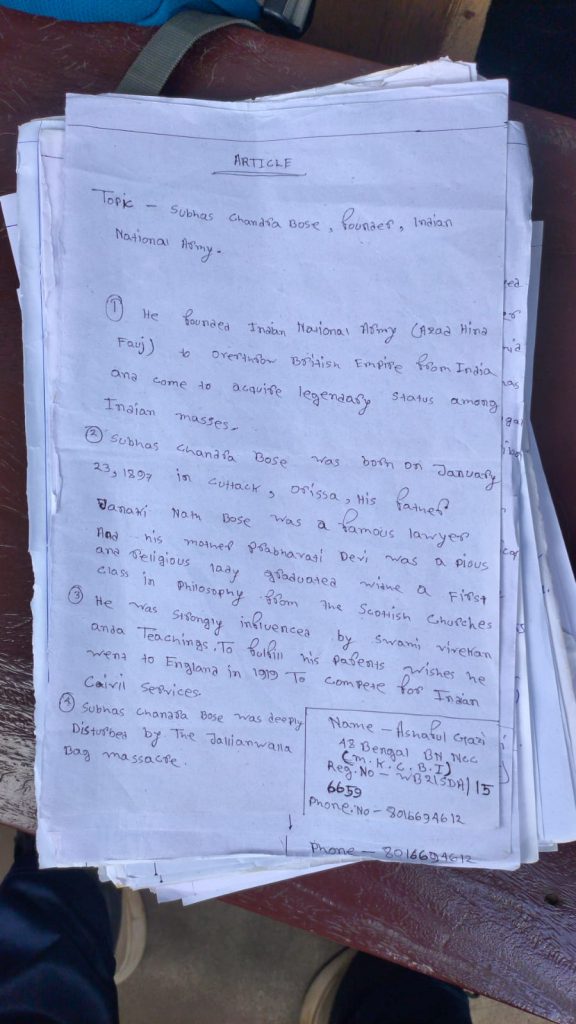 ARTICLE
Topic - Subhas Chandra Bose, founder, Indian
National Army.
① He founded Indian National Army (Azad Hind
Fauj) to overthrow British Empire from India
and come to acquire legendary status among
Indian masses.
② Subhas Chandra Bose was born on January
23, 1897 in Cuttack, Orissa, His father
Janaki Nath Bose was a famous lawyer
And his mother Prabhavati Devi was a pious
and religious lady graduated withe a First
class in Philosophy from the Scottish Churches
③ He was strongly influenced by Swami vivekan
anda Teachings. To fulfill his parents wishes he
went to England in 1919 To compete for Indian
Caivil Services
④ Subhas Chandra Bose was deeply
Disturbed by The Jallianwala
Bag massacre.
Name - Ashaful Gazi
48 Bengal BN, NCC
(M.K.C.B.I)
Reg. No - WB21SDA/15
6659
Phone. No - 8016694612
Phone - 8016694612